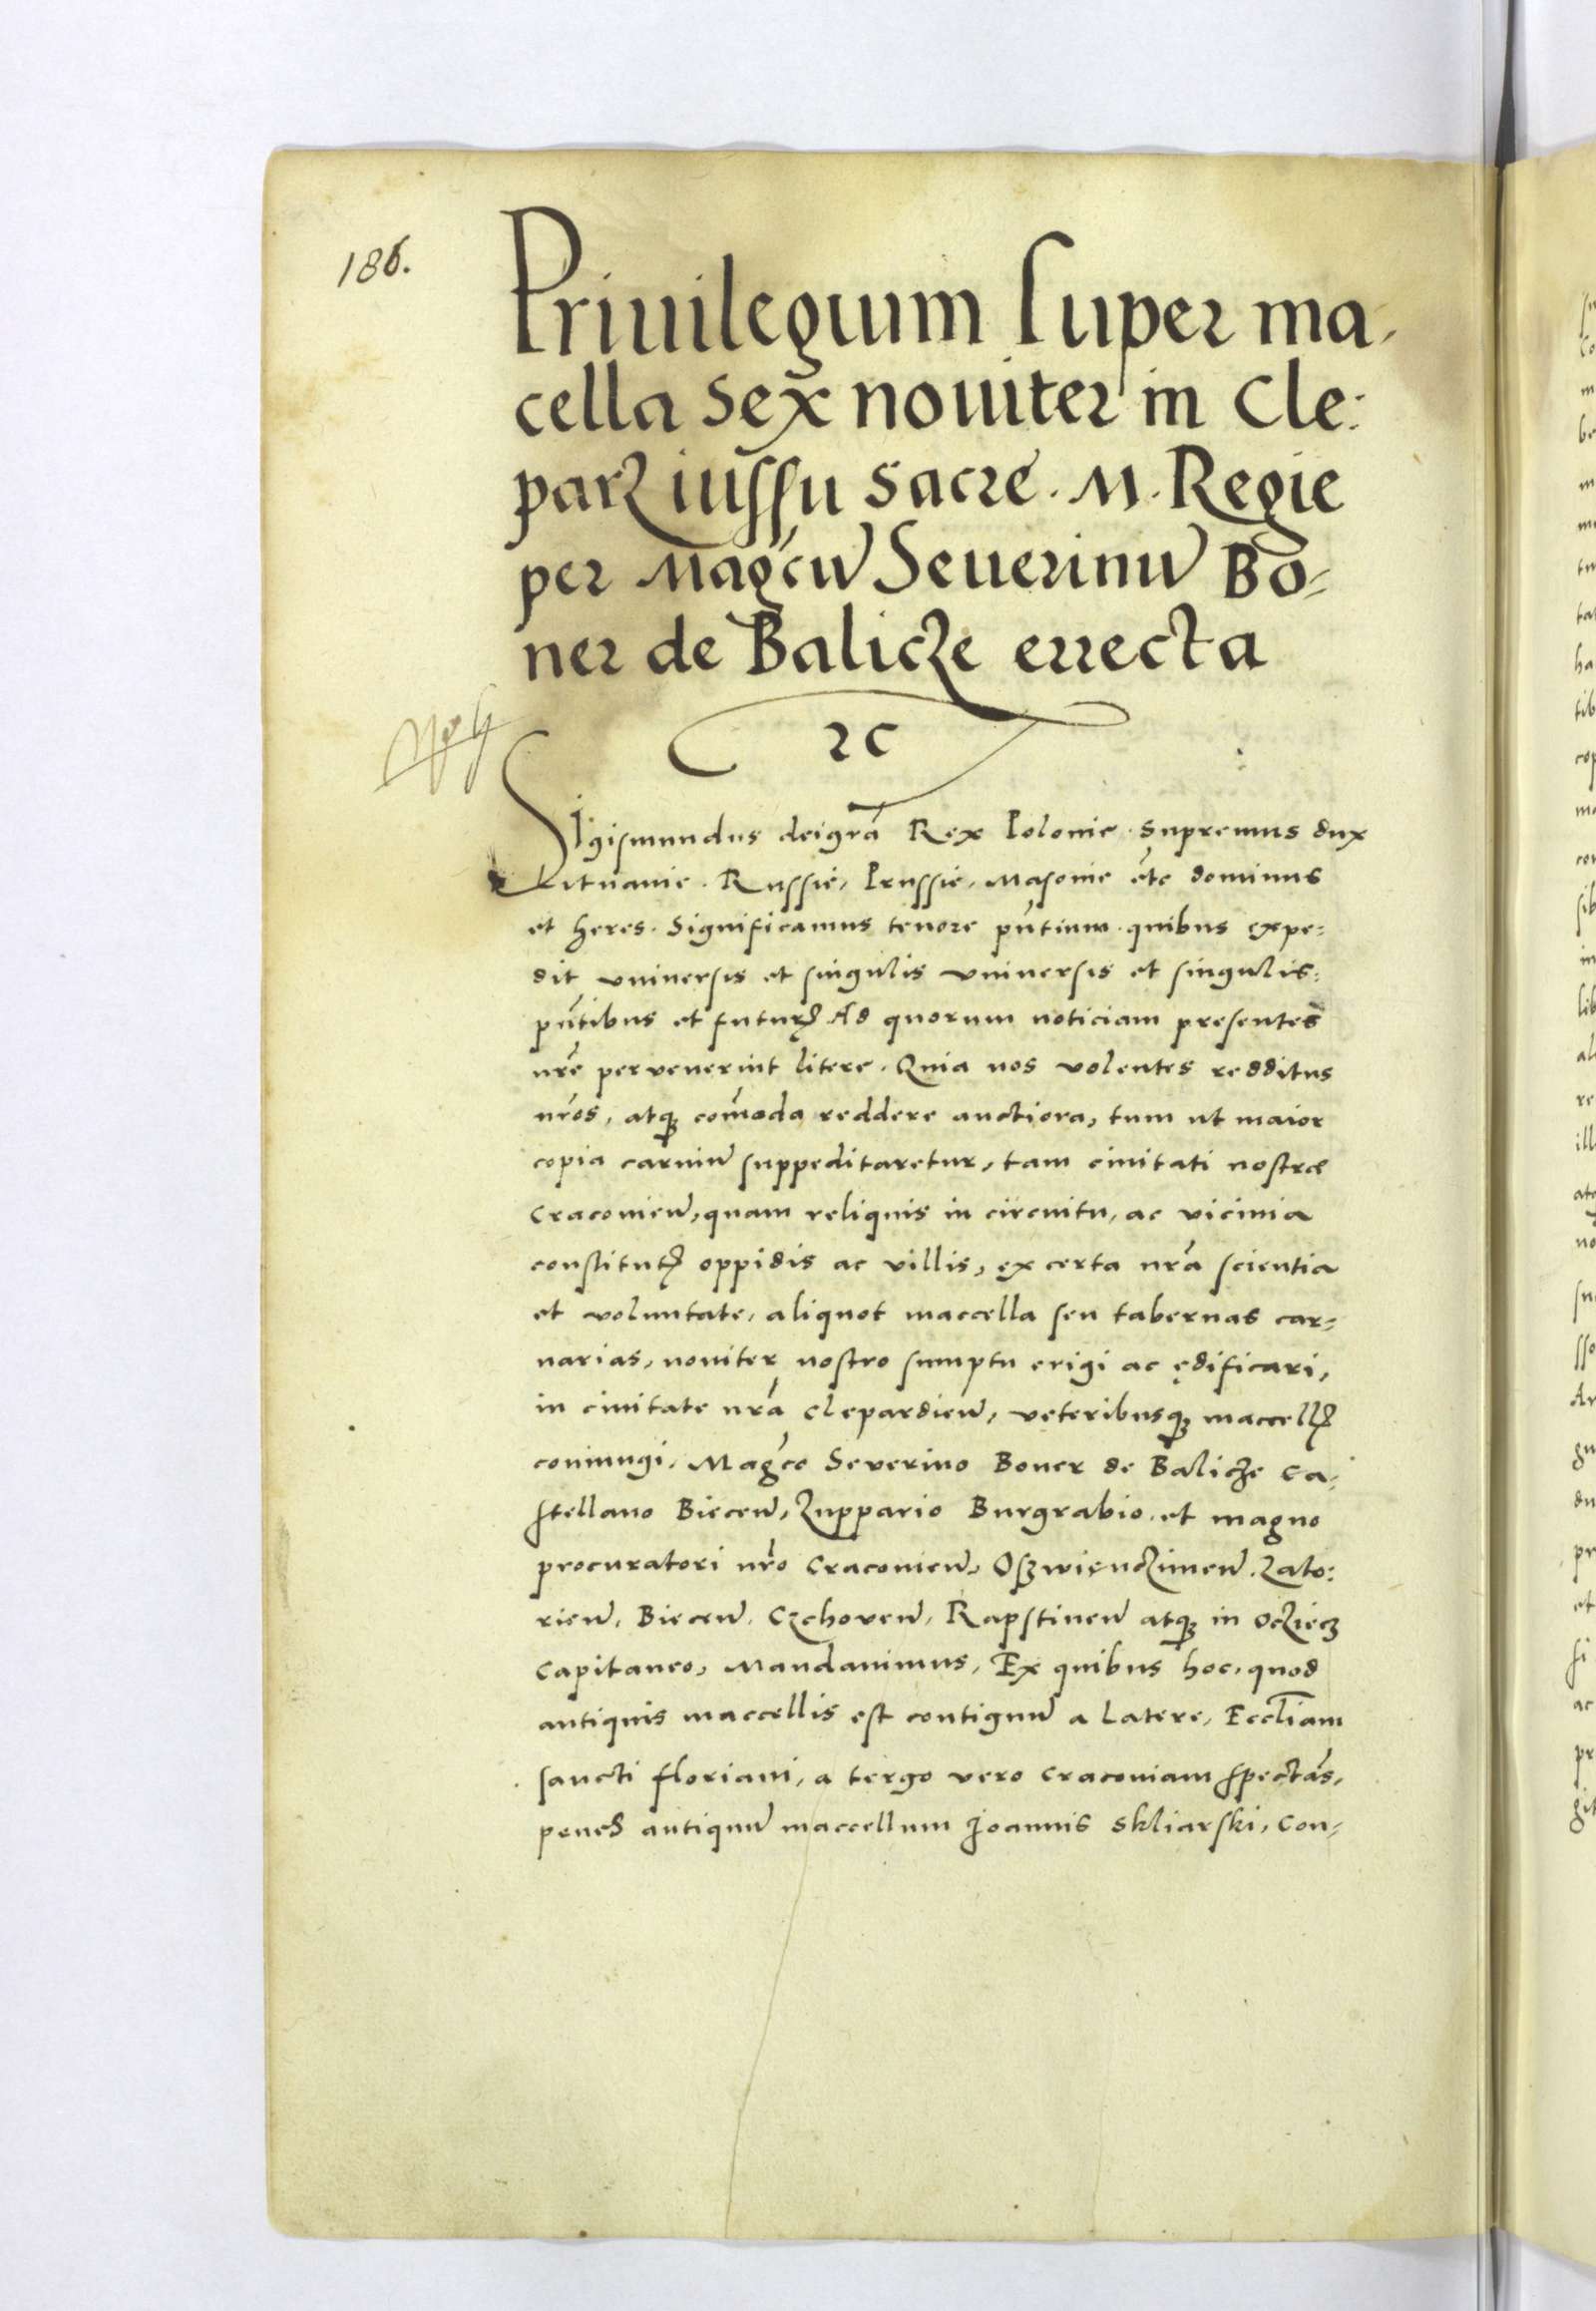 186.
Priuilegium super ma-
cella Sex nouiter in Cle:
parz iussu Sacre. M. Regie
per Mag͂cu᷉ Seuerinu᷉ Bo=
ner de Balicze errecta
ꝛc
Sigismundus dei gr͂a Rex Polonie. Supremus dux
Lituanie. Russie, Prussie, Masouie et͂c dominus
et heres. Significamus tenore pn͂tium. quibus expe=
dit vniuersis et singulis vniuersis et singulis:
pn͂tibus et futurꝭ Ad quorum noticiam presentes
nr͂e pervenerint litere. Quia nos volentes redditus
nr͂os, atqꝫ com͂oda reddere auctiora, tum ut maior
copia carniu᷉ suppeditaretur, tam ciuitati nostræ
Cracovien᷉, quam reliquis in circuitu, ac vicinia
constitutꝭ oppidis ac villis, ex certa nr͂a scientia
et voluntate, aliquot maccella seu tabernas car=
narias, nouiter nostro sumptu erigi ac ędificari,
in ciuitate nr͂a Clepardien᷉, veteribusqꝫ maccellꝭ
coniungi, Mag͂co Severino Boner de Balicze Ca-
stellano Biecen᷉, Zuppario Burgrabio, et magno
procuratori nr͂o Cracouien᷉, Oszwięnczimen᷉. Zato:
rien᷉, Biecen᷉, Czchoven᷉, Rapstinen᷉ atqꝫ in Ocziecz
Capitaneo, Mandauimus, Ex quibus hoc, quod
antiquis maccellis est contiguu᷉ a Latere, Eccl͂iam
sancti floriani, a tergo vero Cracouiam spectan͂s,
penes antiquu᷉ maccellum Joannis Skliarski, Con=